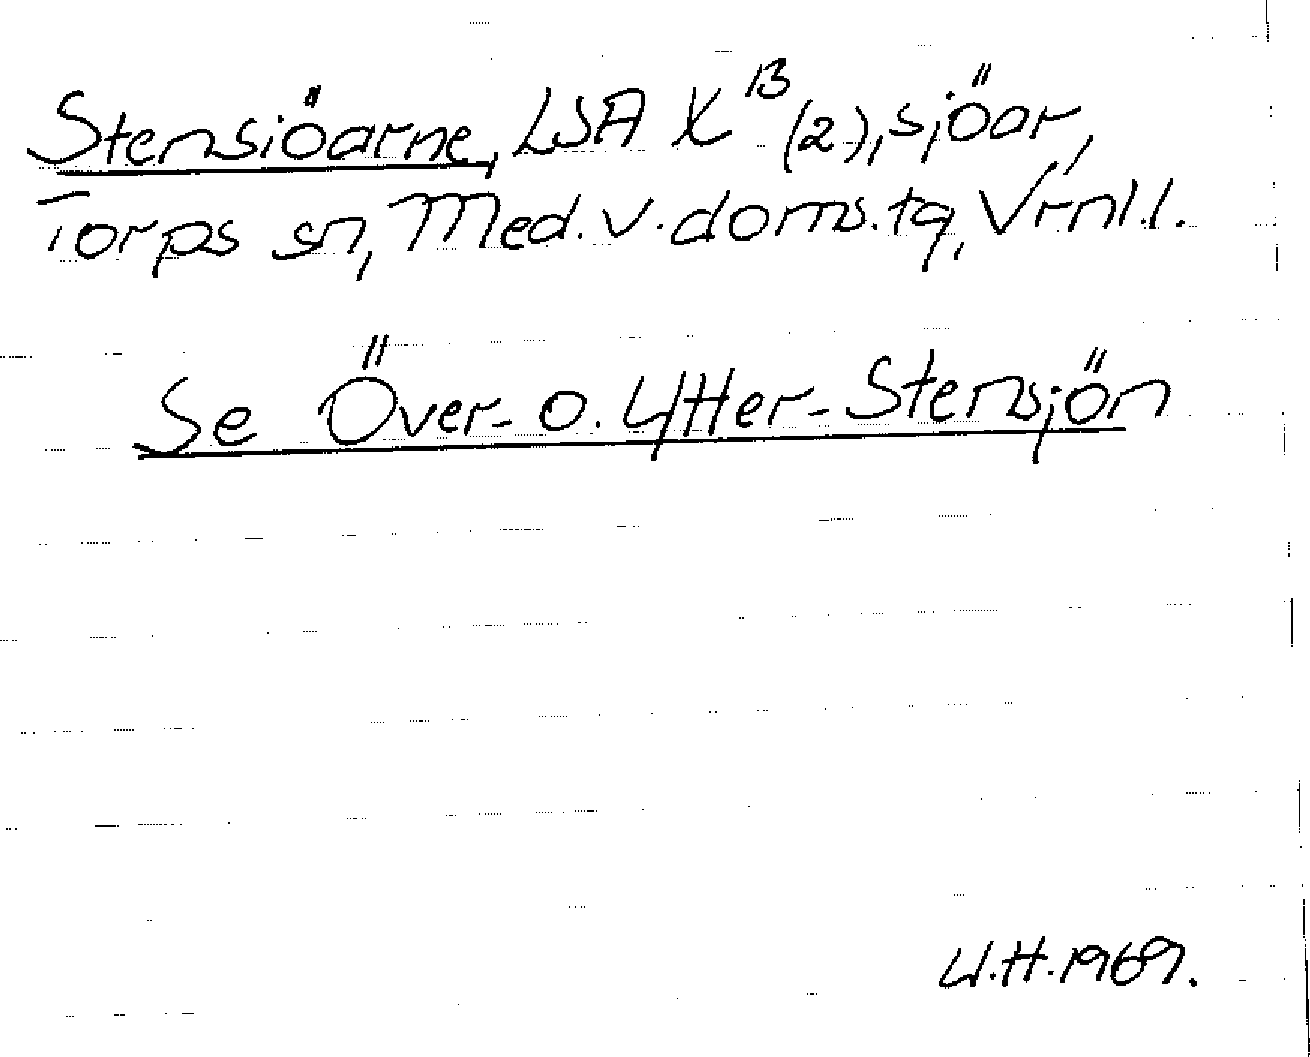 Stensiöarne, LSA X¹³ (2), sjöar,
Torps sn, Med.v.doms.tg, Vrnl.l.
Se Över- o. Ytter-Stensjön
U.H. 1969.